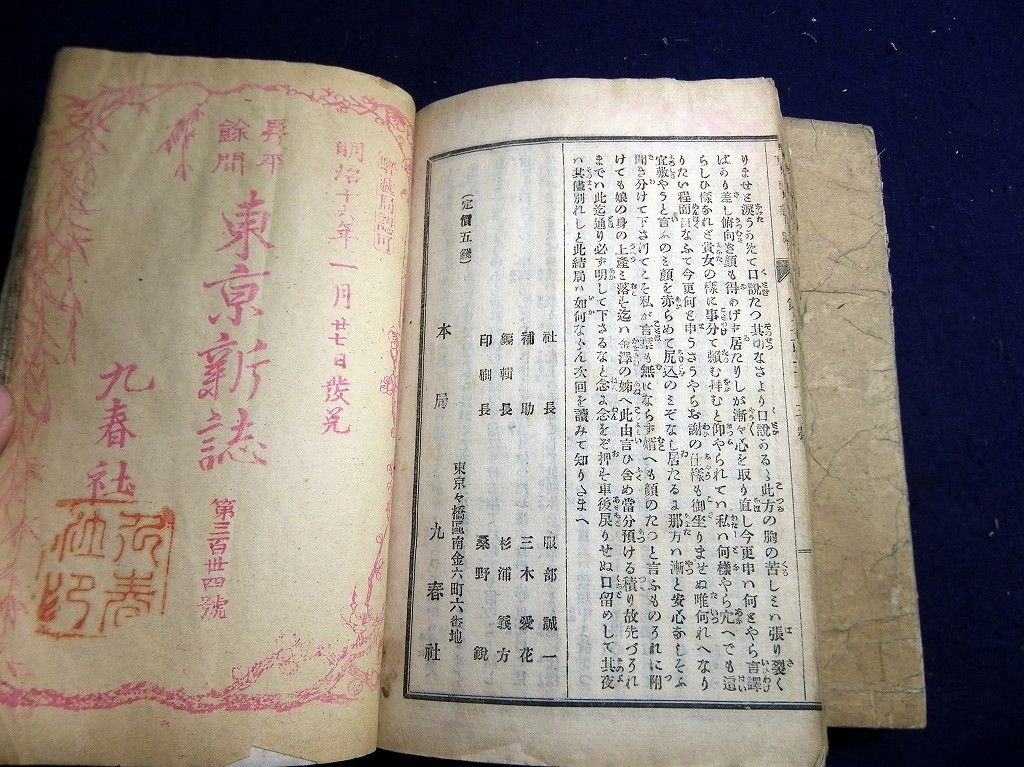 りませと涙うのべて口説たつ其切なさより口説のるゝ此方の胸の苦しミハ張り裂く
ばのり差し俯向き顔も得のげず居たりしが漸々心を取り直し今更申ハ何とやら言譯
らしひ樣なれど貴女の樣に事分て頼む拜むと仰やられてハ私ハ何樣やら穴へでも這
りたい程面目なふて今更何と申うさうやらお謝の仕樣も御坐りませぬ唯何れへなり
宜敷やうと言ふのミ顔を亦らめて尻込のミぞなし居たるよ那方ハ漸と安心なしそふ
聞き分けて下さけてこそ私が言葉も無にならず婿へも顔のたつと言ふものそれに附
けても娘の身の上產ミ落とす迄ハ金澤の姊へ此由言ひ含め當分預ける積り故先づそれ
までハ此迄通り必ず明して下さるなと念よ念をぞ押と車後戻りせぬ口留めして其夜
ハ其儘別れしと此結局ハ如何ならん次回を讀みて知りたまへ
社長 服部誠一
補助 三木愛花
編輯長 杉浦義方
印刷長 桑野鋭
本局 東京々橋區南金六町六番地 九春社
(定價五錢)
驛遞局認可
明治十六年一月廿七日發兌
昇平
餘閒
東京新誌
第三百卅四號
九春社
九春
社印